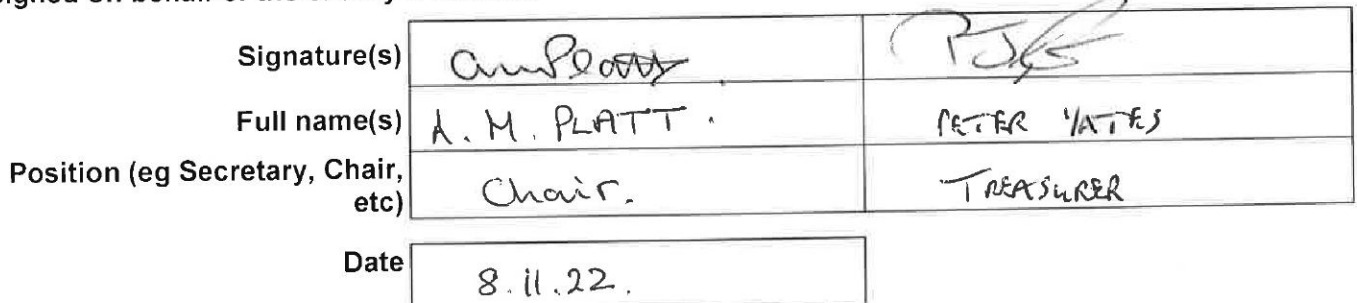 Signature(s) amPlatt
Full name(s) A. M. PLATT. PETER YATES
Position (eg Secretary, Chair, Chair. TREASURER
etc)
Date 8.11.22.